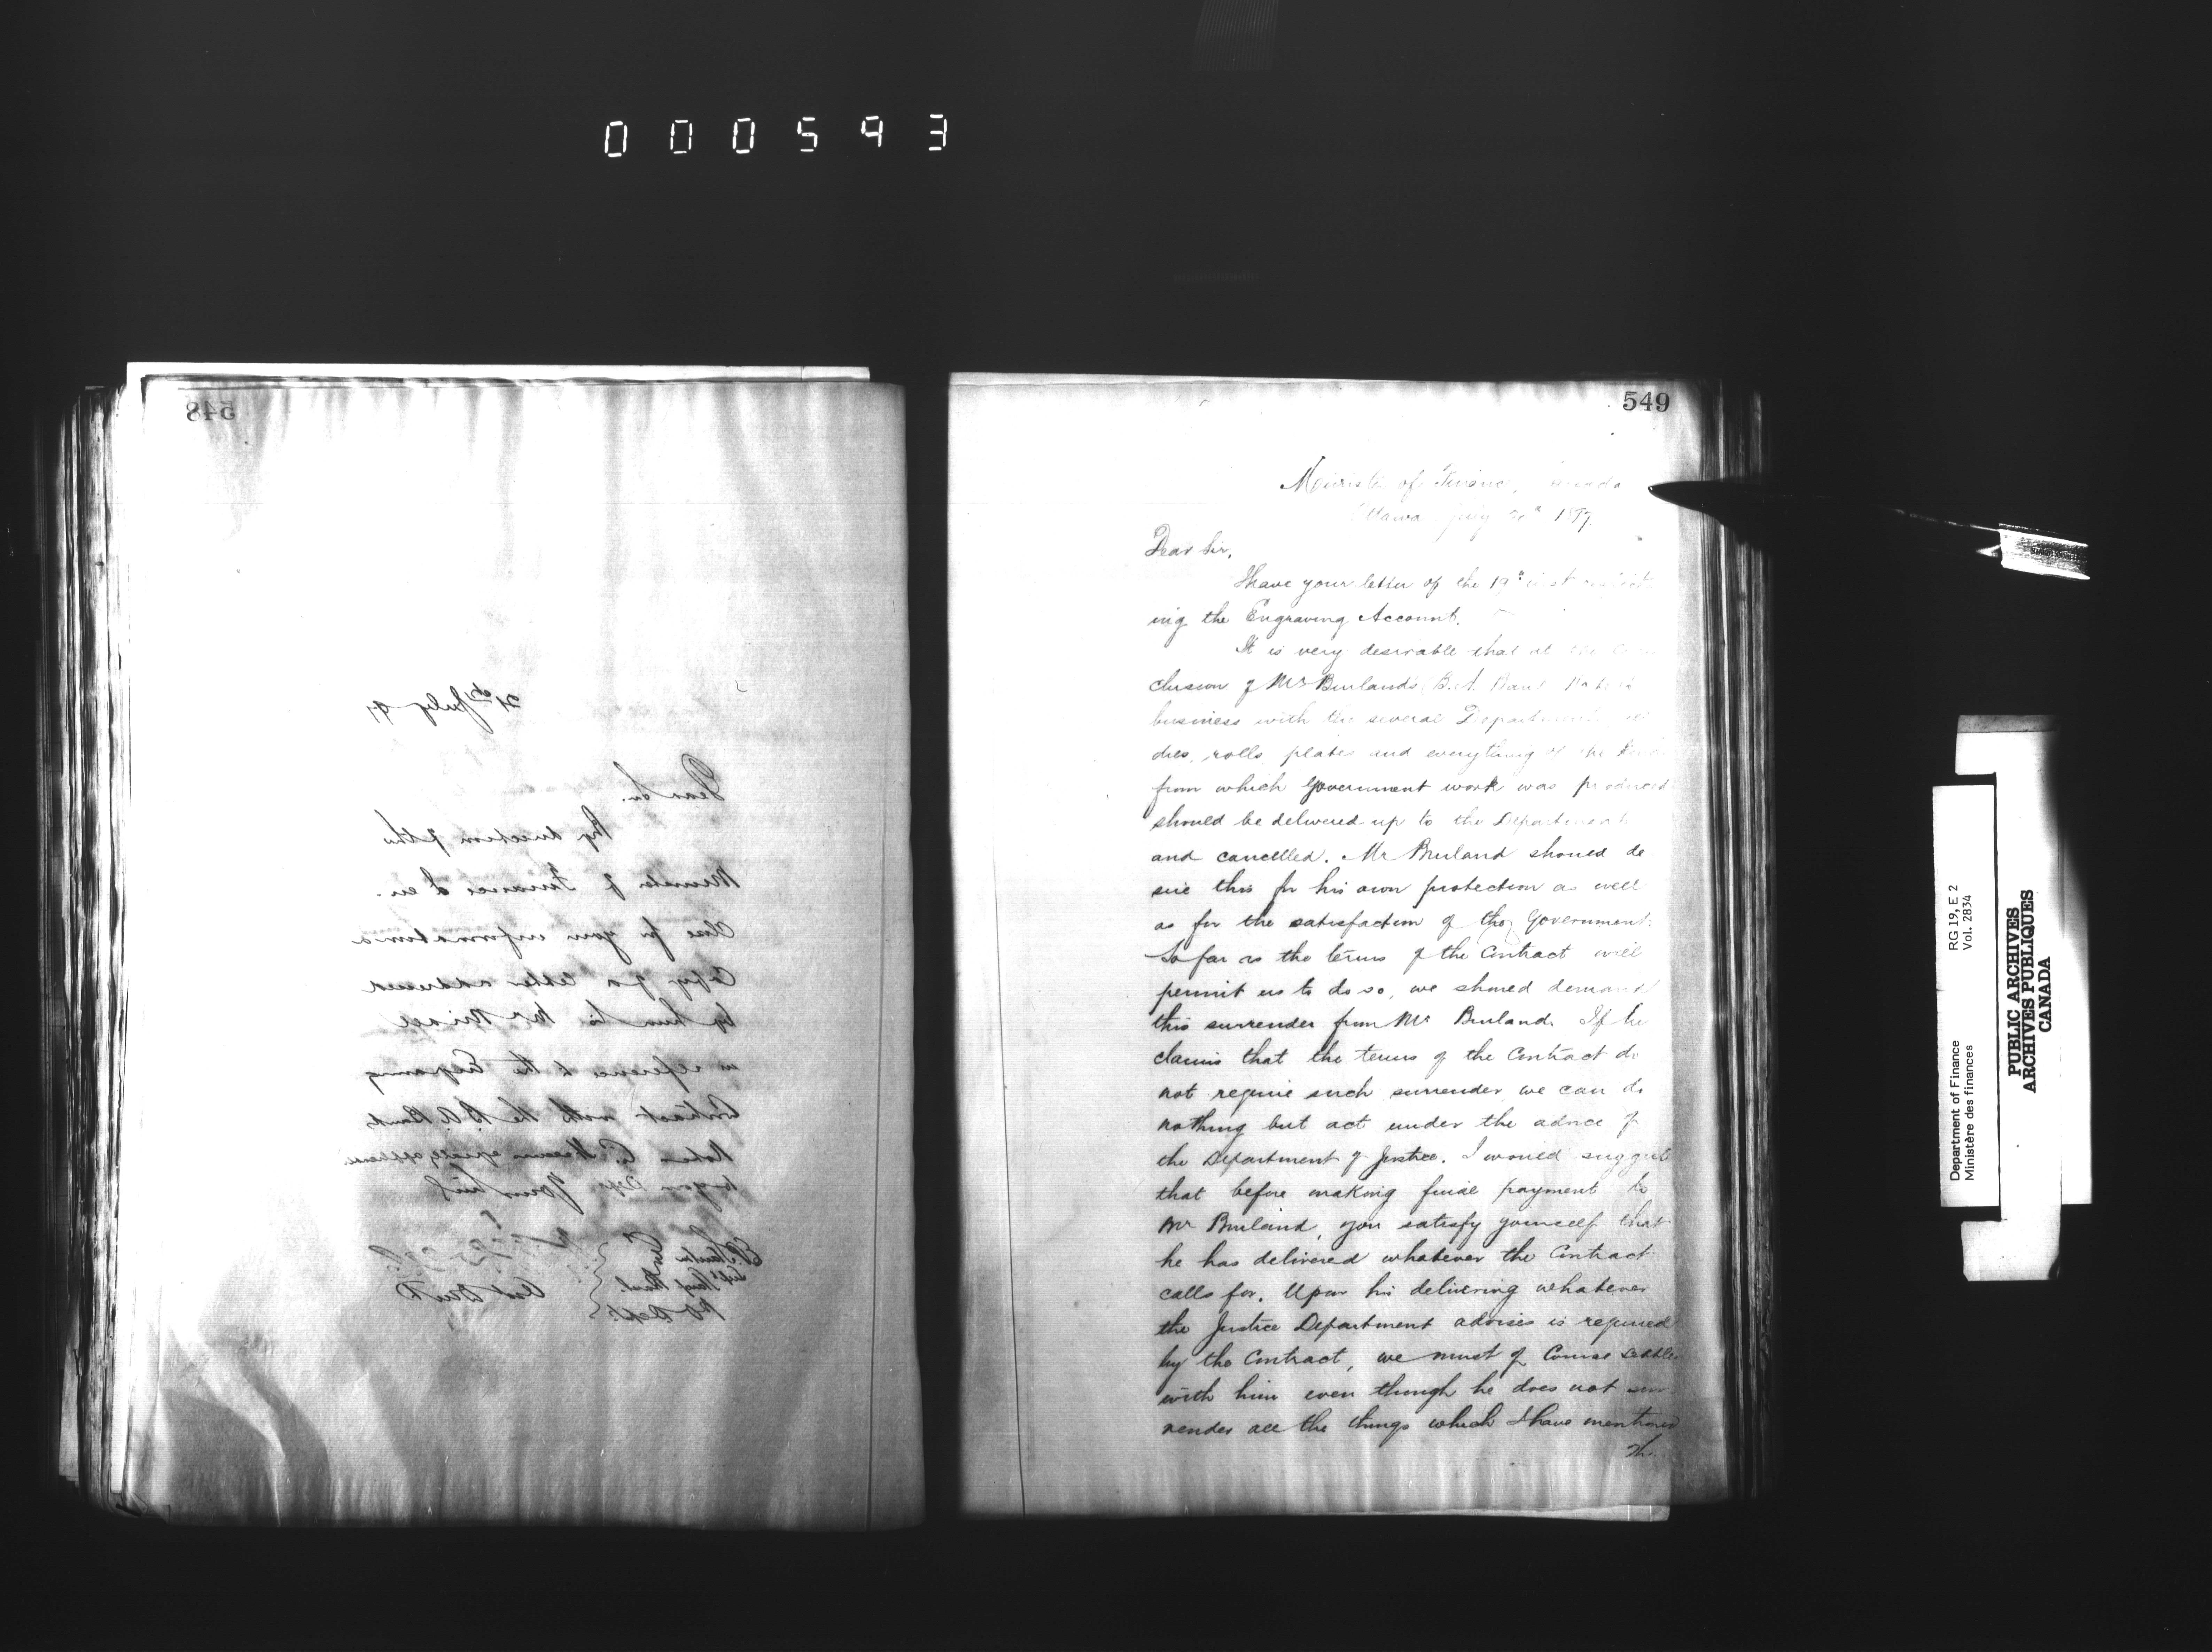 000593
548
21st July 97
Dear Sir.
By direction of the
Minister of Finance I en-
close for your information a
Copy of a letter addressed
by him to Mr
in reference to the Engraving
Contract with the B. A. Bank
Note Co.
Yours truly
Asst D
P O Dept
549
Minister of Finance, Canada
Ottawa July 1897
Dear Sir,
I have your letter of the 19th inst respect
ing the Engraving Account.
It is very desirable that at the con
clusion of Mr Burland's B. A. Bank Note Co
business with the several Departments
dies, rolls, plates and everything of the kind
from which Government work was produced
should be delivered up to the Department
and cancelled. Mr Burland should de
sire this for his own protection as well
as for the satisfaction of the Government.
So far as the terms of the Contract will
permit us to do so, we should demand
this surrender from Mr Burland. If he
claims that the terms of the Contract do
not require such surrender we can do
nothing but act under the advice of
the Department of Justice. I would suggest
that before making final payment to
Mr Burland, you satisfy yourself that
he has delivered whatever the Contract
calls for. Upon his delivering whatever
the Justice Department advises is required
by the Contract, we must of Course settle
with him even though he does not sur
render all the things which I have mentioned
Th
Department of Finance RG 19, E 2
Ministère des finances Vol. 2834
PUBLIC ARCHIVES
ARCHIVES PUBLIQUES
CANADA